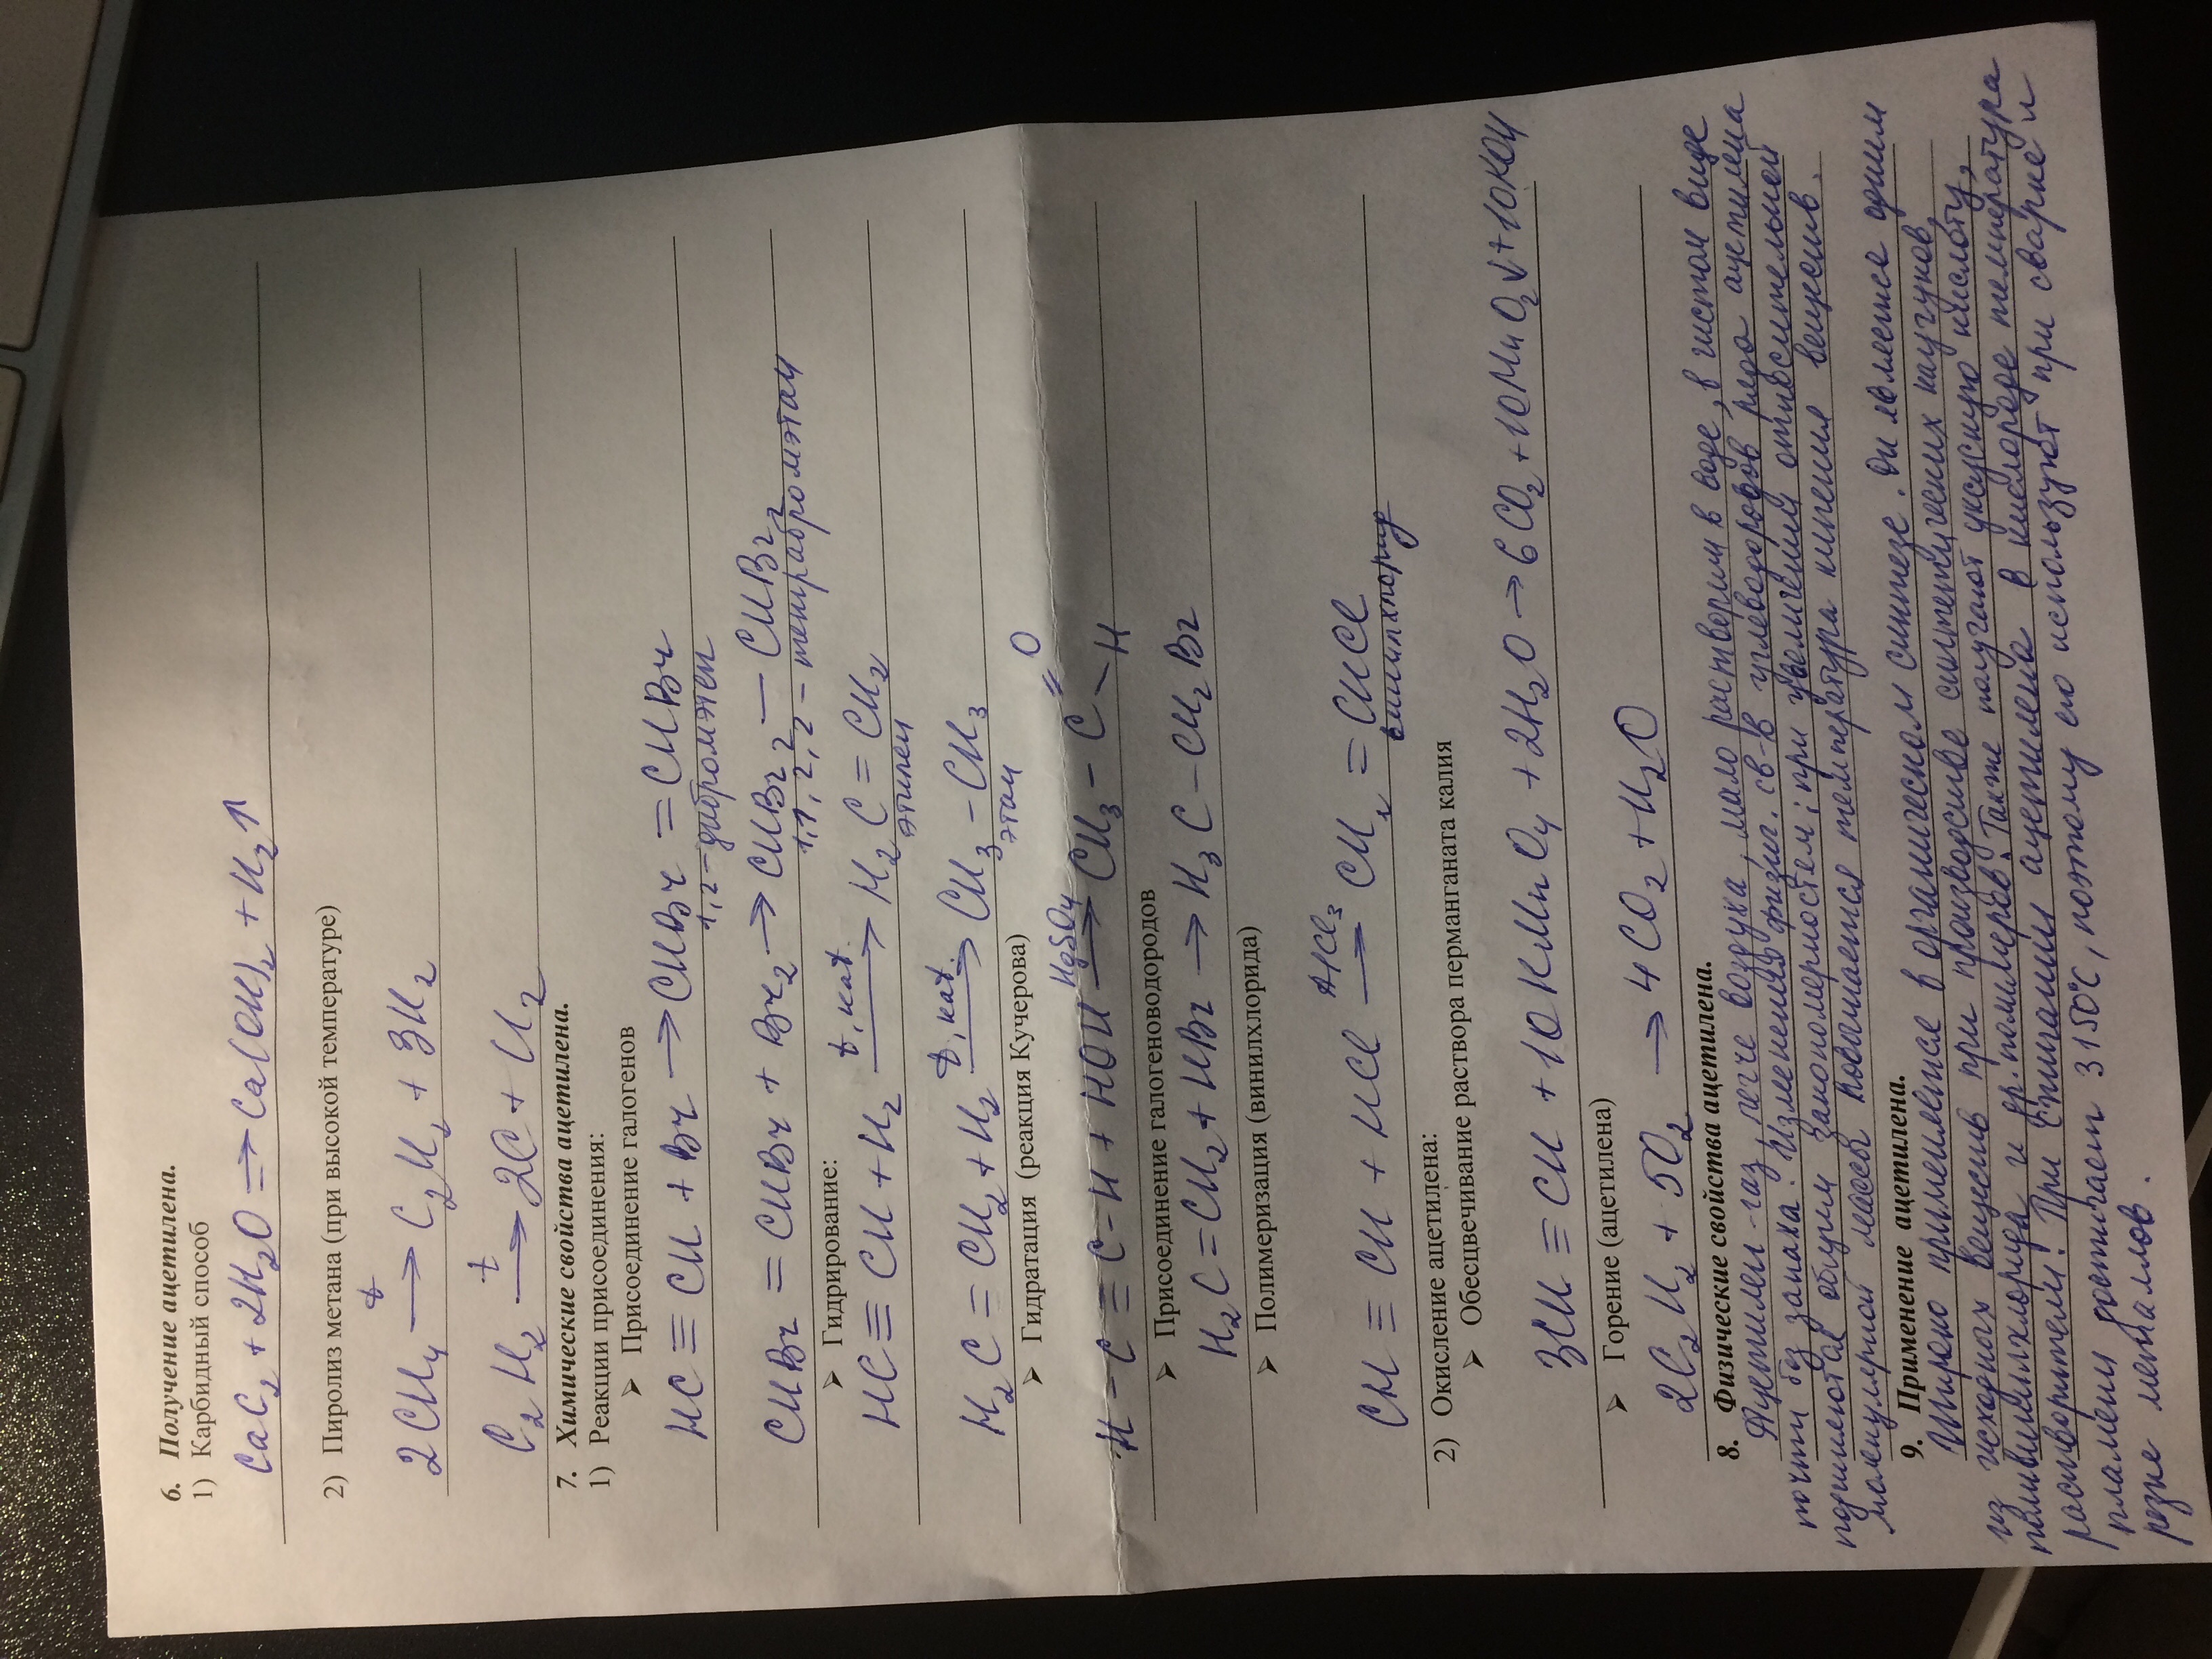 6. Получение ацетилена.
1) Карбидный способ
CaC₂ + 2H₂O → Ca(OH)₂ + H₂↑
2) Пиролиз метана (при высокой температуре)
2CH₄ —t→ C₂H₂ + 3H₂
C₂H₂ —t→ 2C + H₂
7. Химические свойства ацетилена.
1) Реакции присоединения:
➤ Присоединение галогенов
HC≡CH + Br₂ → CHBr=CHBr
1,2-дибромэтен
CHBr=CHBr + Br₂ → CHBr₂—CHBr₂
1,1,2,2-тетрабромэтан
➤ Гидрирование:
HC≡CH + H₂ —t, кат.→ H₂C=CH₂
этилен
H₂C=CH₂ + H₂ —t, кат.→ CH₃-CH₃
этан
➤ Гидратация (реакция Кучерова)
H-C≡C-H + HOH —HgSO₄→ CH₃-C=O
-H
➤ Присоединение галогеноводородов
H₂C=CH₂ + HBr → H₃C-CH₂Br
➤ Полимеризация (винилхлорида)
CH≡CH + HCl —AlCl₃→ CH₂=CHCl
винилхлорид
2) Окисление ацетилена:
➤ Обесцвечивание раствора перманганата калия
3CH≡CH + 10KMnO₄ + 2H₂O → 6CO₂ + 10MnO₂↓ + 10KOH
➤ Горение (ацетилена)
2C₂H₂ + 5O₂ → 4CO₂ + H₂O
8. Физические свойства ацетилена.
Ацетилен-газ, легче воздуха, мало растворим в воде, в чистом виде
почти без запаха. Изменения физич. св-в углеводородов ряда ацетилена
подчиняются общим закономерностям; при увеличении относительной
молекулярной массы повышается температура кипения веществ.
9. Применение ацетилена.
Широко применяется в органическом синтезе. Он является одним
из исходных веществ при производстве синтетических каучуков,
поливинилхлорида и др. полимеров. Также получают уксусную кислоту,
растворители. При сжигании ацетилена в кислороде температура
пламени достигает 3150°C, поэтому его используют при сварке и
резке металлов.